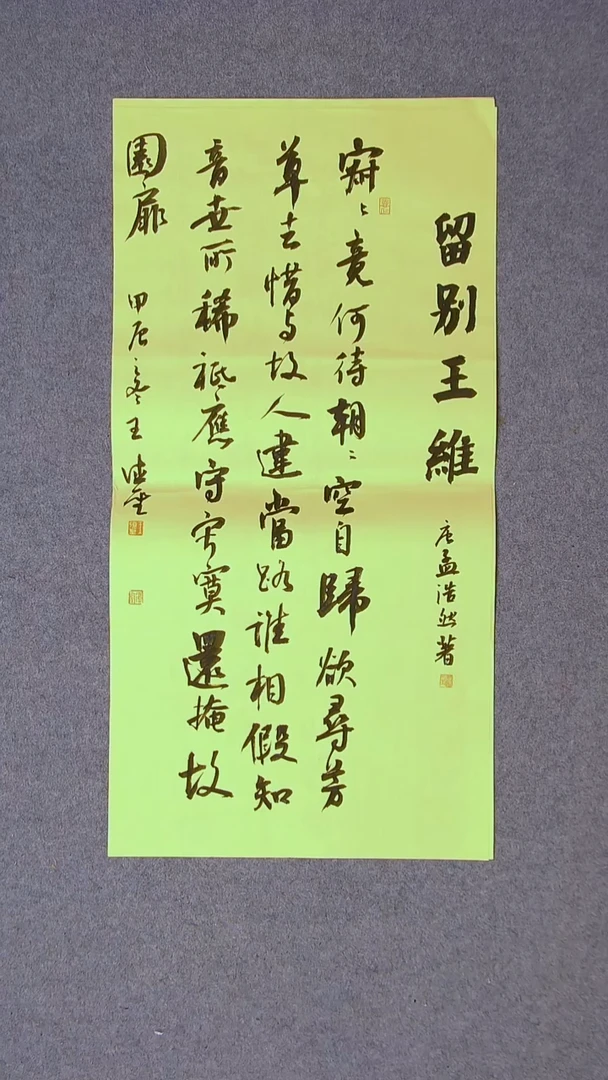 留别王維
唐孟浩然著
寂〻竟何待朝〻空自歸欲尋芳
草去惜与故人違當路誰相假知
音世所稀祗應守寂寞還掩故
園扉
甲辰之冬王